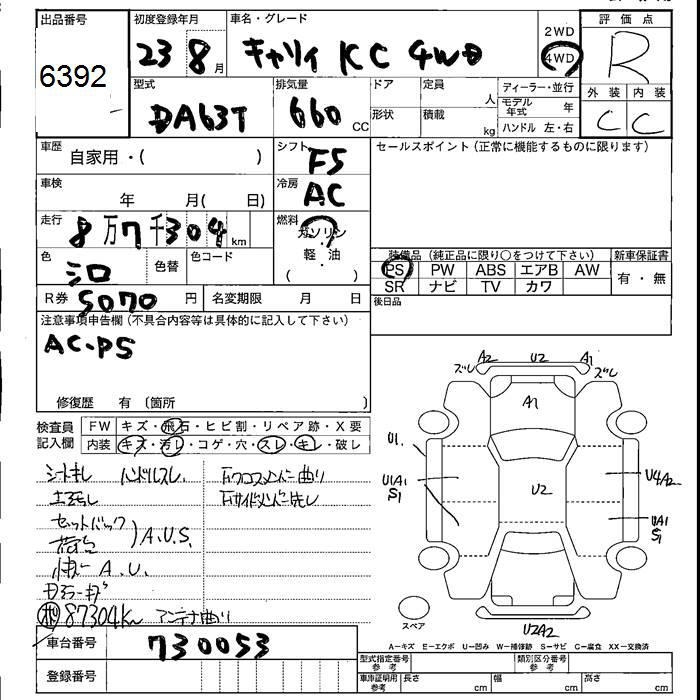 出品番号
6392
初度登録年月
23 8月
車名・グレード
キャリイ KC 4WD
2WD
4WD
評価点
R
外装 内装
C C
型式
DA63T
排気量
660 CC
ドア
定員
人
形状
積載
kg
ディーラー・並行
モデル年式 年
ハンドル 左・右
車歴
自家用・( )
シフト
F5
セールスポイント(正常に機能するものに限ります)
車検
年 月( 日)
冷房
AC
走行
8万7千304km
燃料
ガソリン
・
軽油
・
( )
色
シロ
色替
色コード
装備品(純正品に限り○をつけて下さい)
新車保証書
PS PW ABS エアB AW
SR ナビ TV カワ
有・無
R券 5070円
名変期限 月 日
後日品
注意事項申告欄(不具合内容等は具体的に記入して下さい)
AC・PS
修復歴 有 〔箇所 〕
検査員記入欄
FW キズ・飛石・ヒビ割・リペア跡・X要
内装 キズ・汚レ・コゲ・穴・スレ・キレ・破レ
シートキレ ハンドルスレ
セットバック
荷台
A.U.S.
A.U.
87304km アンテナ曲り
A2 U2 A1
ズレ ズレ
A1
U1
U1A1
S1
U2
U4A2
UA1
S1
U2A2
スペア
A-キズ E-エクボ U-凹み W-補修跡 S-サビ C-腐食 XX-交換済
車台番号
730053
登録番号
型式指定番号 参考
類別区分番号 参考
車庫証明用 参考
長さ cm
幅 cm
高さ cm